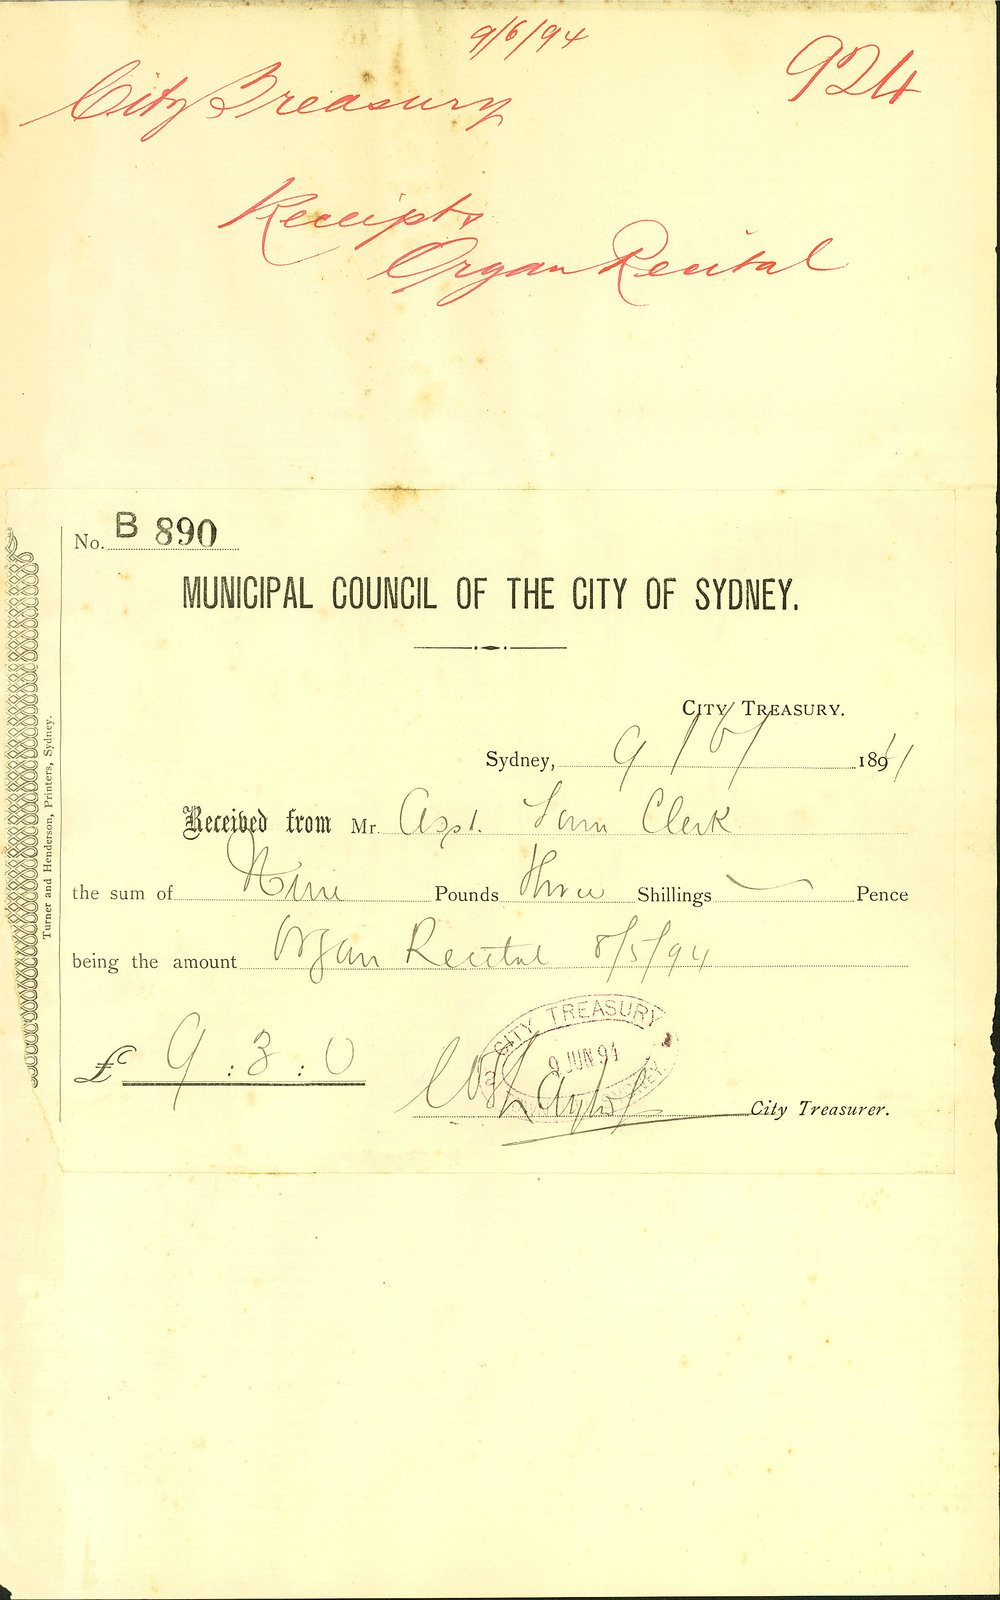 9/6/94
924
City Treasury
Receipts
Organ Recital
No. B 890
MUNICIPAL COUNCIL OF THE CITY OF SYDNEY.
CITY TREASURY.
Sydney, 9/6/ 1894
Received from Mr. Asst. Town Clerk
the sum of Nine Pounds three Shillings — Pence
being the amount Organ Recital 8/5/94
£ 9 : 3 : 0
CITY TREASURY
9 JUN 94
SYDNEY
City Treasurer.
Turner and Henderson, Printers, Sydney.